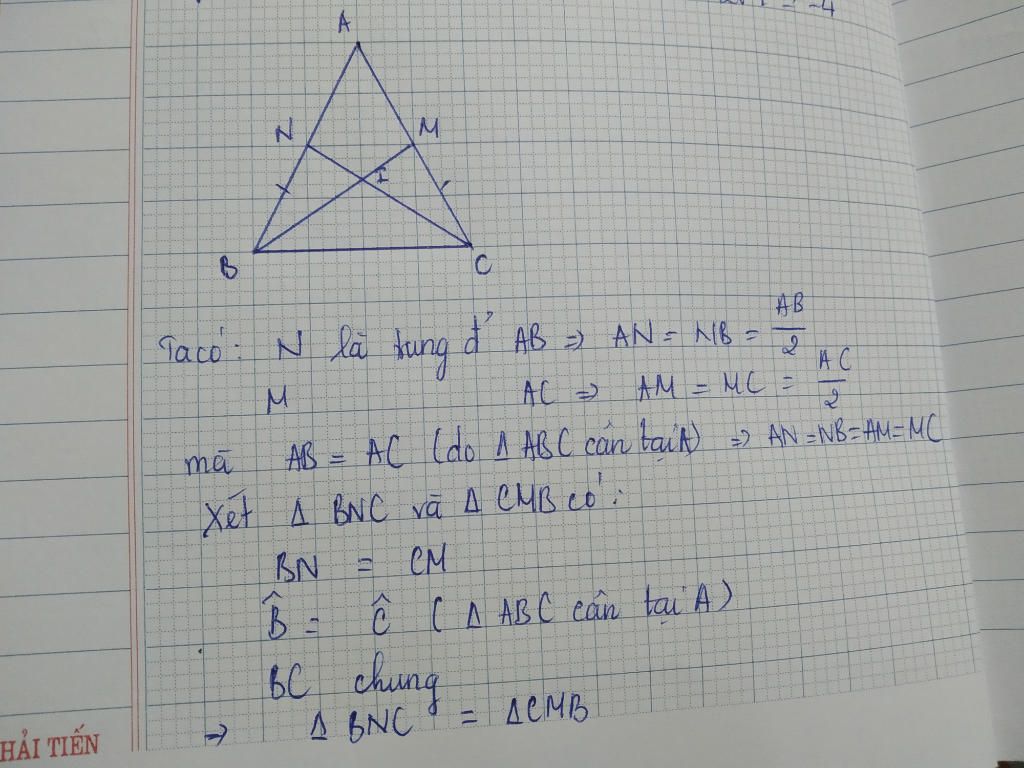 A
N
M
I
B
C
Ta có: N là trung đ' AB => AN = NB = AB/2
M AC => AM = MC = AC/2
mà AB = AC (do Δ ABC cân tại A) => AN = NB = AM = MC
Xét Δ BNC và Δ CMB có:
BN = CM
B̂ = Ĉ ( Δ ABC cân tại A)
BC chung
=> Δ BNC = ΔCMB
HẢI TIẾN